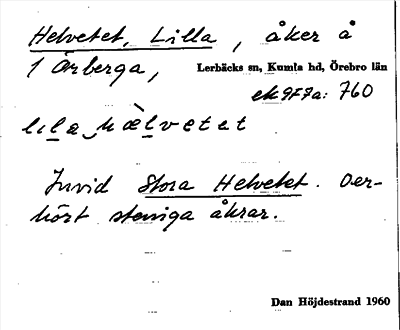 Helvetet, Lilla, åker å
1 Örberga, Lerbäcks sn, Kumla hd, Örebro län
ek 9F7a: 760
lıla hæ̀lvetet
Invid Stora Helvetet. Oer-
hört steniga åkrar.
Dan Höjdestrand 1960